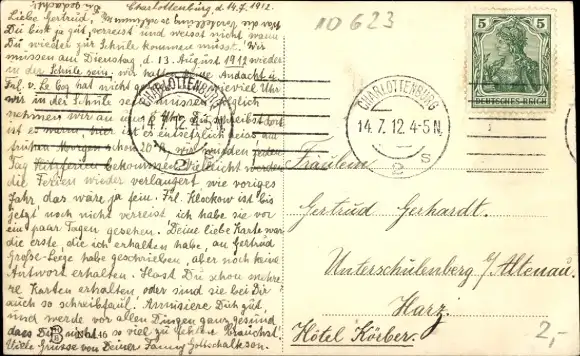 Charlottenburg d 14.7.1912.
Liebe Gertrud,
Du bist ja gut verreist und weisst nicht wann
Du wieder zur Schule kommen musst. Wir
müssen am Dienstag, d. 13. August 1912 wieder
in der Schule sein, wir hatten eine Andacht u.
Frl. v. Le Coq hat nicht wieviel Uhr
wir in der Schule sein müssen
nehmen wir an um 8 Uhr. Du schreibst dort
ist es warm, hier ist es entsetzlich heiss am
frühen Morgen schon 20° R, wir würden jeden
Tag Hitzferien bekommen. Vielleicht werden
die Ferien wieder verlängert wie voriges
Jahr, das wäre ja fein. Frl. Klockow ist bis
jetzt noch nicht verreist ich habe sie vor
ein paar Tagen gesehen. Deine liebe Karte war
die erste, die ich erhalten habe, an Gertrud
Große-Lege habe geschrieben, aber noch keine
Antwort erhalten. Hast Du schon mehre-
re Karten erhalten oder sind sie bei Dir
auch so schreibfaul? Amüsiere Dich gut
und werde vor allen Dingen ganz gesund
dass Du nicht so viel zu fehlen brauchst!
Viele Grüsse von Deiner Fanny Gottschalkson.
No 146
10623
5 5
DEUTSCHES REICH
CHARLOTTENBURG
14.7.12.4-5N.
2 s
CHARLOTTENBURG
14.7.12.4-5N.
2 s
Fräulein
Gertrud Gerhardt.
Unterschulenberg b/ Altenau.
Harz.
Hôtel Körber.
2,-